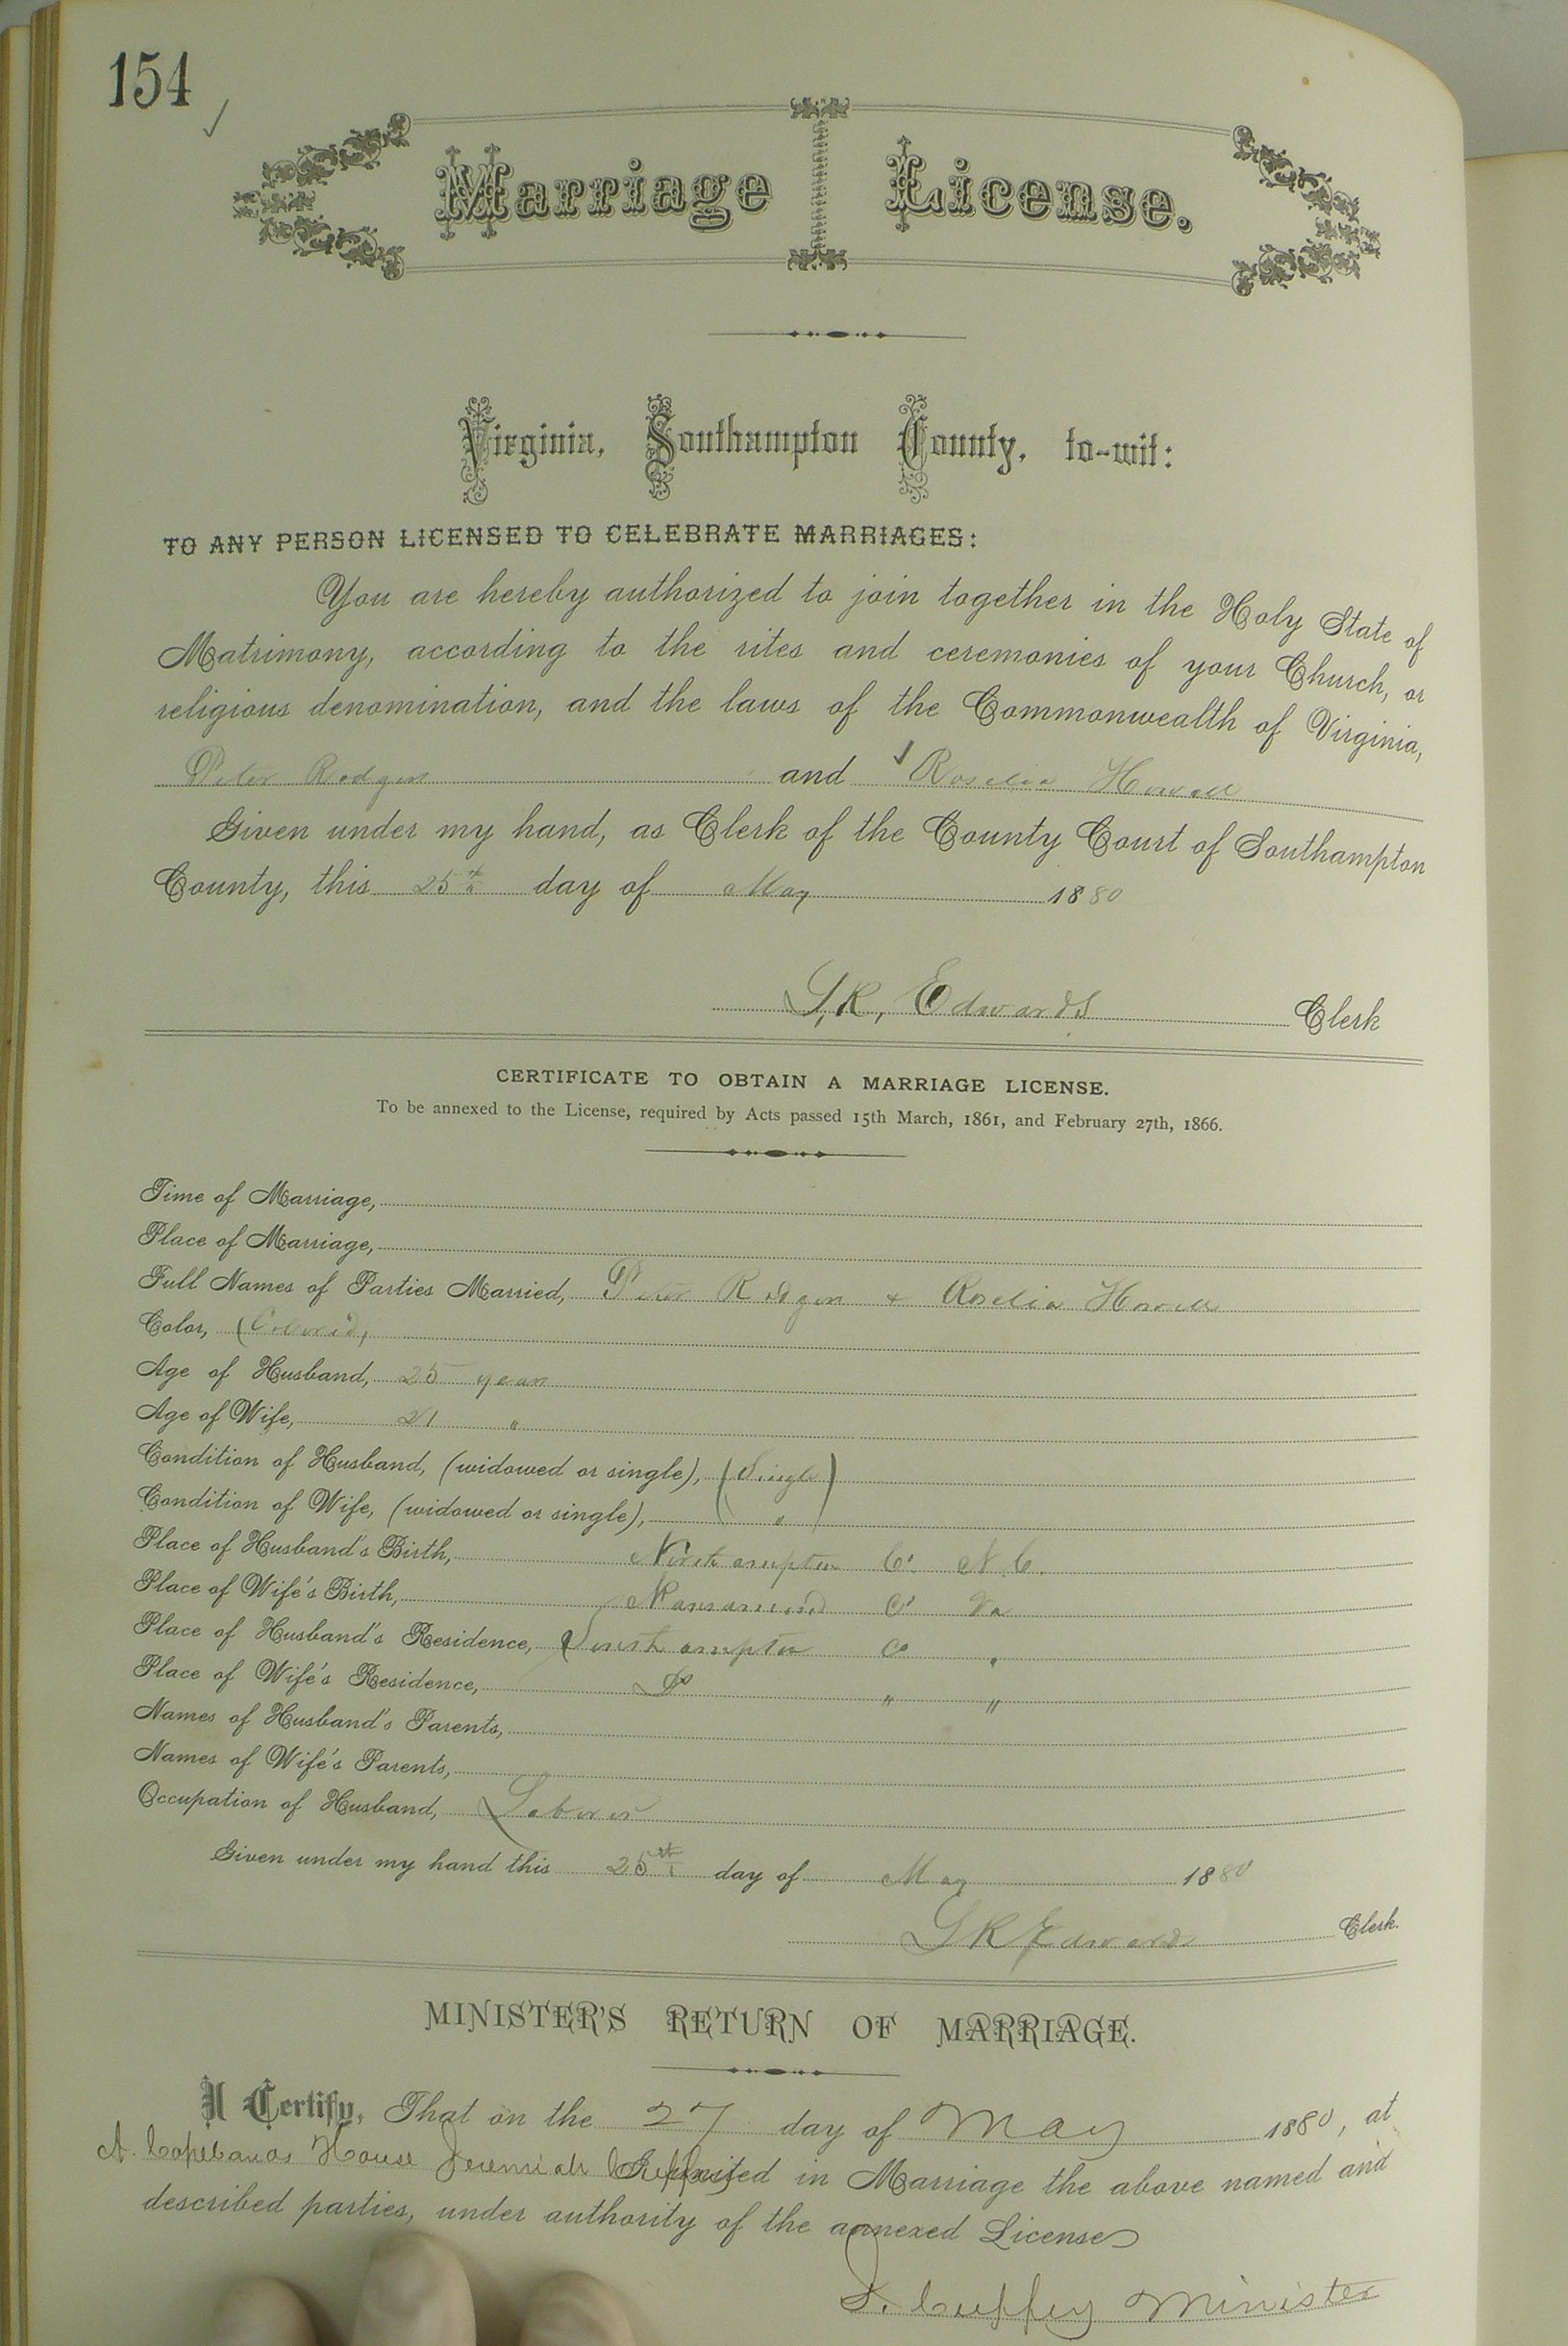 154
Marriage License.
Virginia, Southampton County, to-wit:
TO ANY PERSON LICENSED TO CELEBRATE MARRIAGES:
You are hereby authorized to join together in the Holy State of
Matrimony, according to the rites and ceremonies of your Church, or
religious denomination, and the laws of the Commonwealth of Virginia,
Peter Rodgers and Roselia Howell
Given under my hand, as Clerk of the County Court of Southampton
County, this 25th day of May 1880
L, R, Edwards Clerk
CERTIFICATE TO OBTAIN A MARRIAGE LICENSE.
To be annexed to the License, required by Acts passed 15th March, 1861, and February 27th, 1866.
Time of Marriage,
Place of Marriage,
Full Names of Parties Married, Peter Rodgers + Roselia Howell
Color, (Colored)
Age of Husband, 25 years
Age of Wife, 21 "
Condition of Husband, (widowed or single), (Single)
Condition of Wife, (widowed or single), "
Place of Husband's Birth, Northampton Co. N. C.
Place of Wife's Birth, Nansemond Co Va
Place of Husband's Residence, Southampton Co "
Place of Wife's Residence, Do " "
Names of Husband's Parents,
Names of Wife's Parents,
Occupation of Husband, Laborer
Given under my hand this 25th day of May 1880
L R Edwards Clerk.
MINISTER'S RETURN OF MARRIAGE.
I Certify, That on the 27 day of May 1880, at
A. Copelands House Jeremiah Cuffey I united in Marriage the above named and
described parties, under authority of the annexed License
J. Cuffey Minister